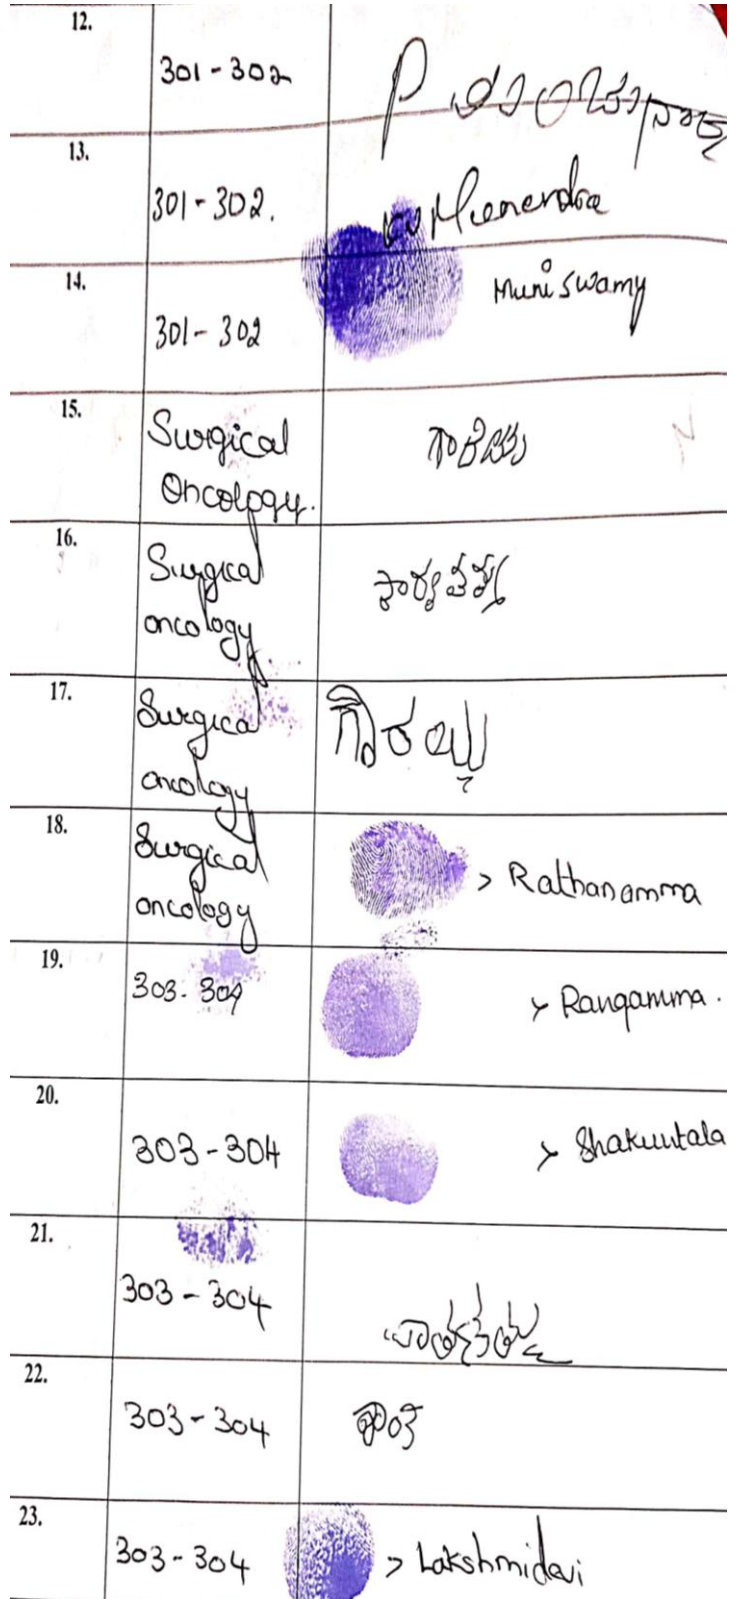 12.
301-302
P
13.
301-302.
K V Munendra
14.
301-302
Muniswamy
15.
Surgical
Oncology.
16.
Surgical
oncology
17.
Surgical
oncology
18.
Surgical
oncology
> Rathanamma
19.
303-304
> Rangamma.
20.
303-304
> Shakuntala
21.
303-304
22.
303-304
23.
303-304
> Lakshmidevi